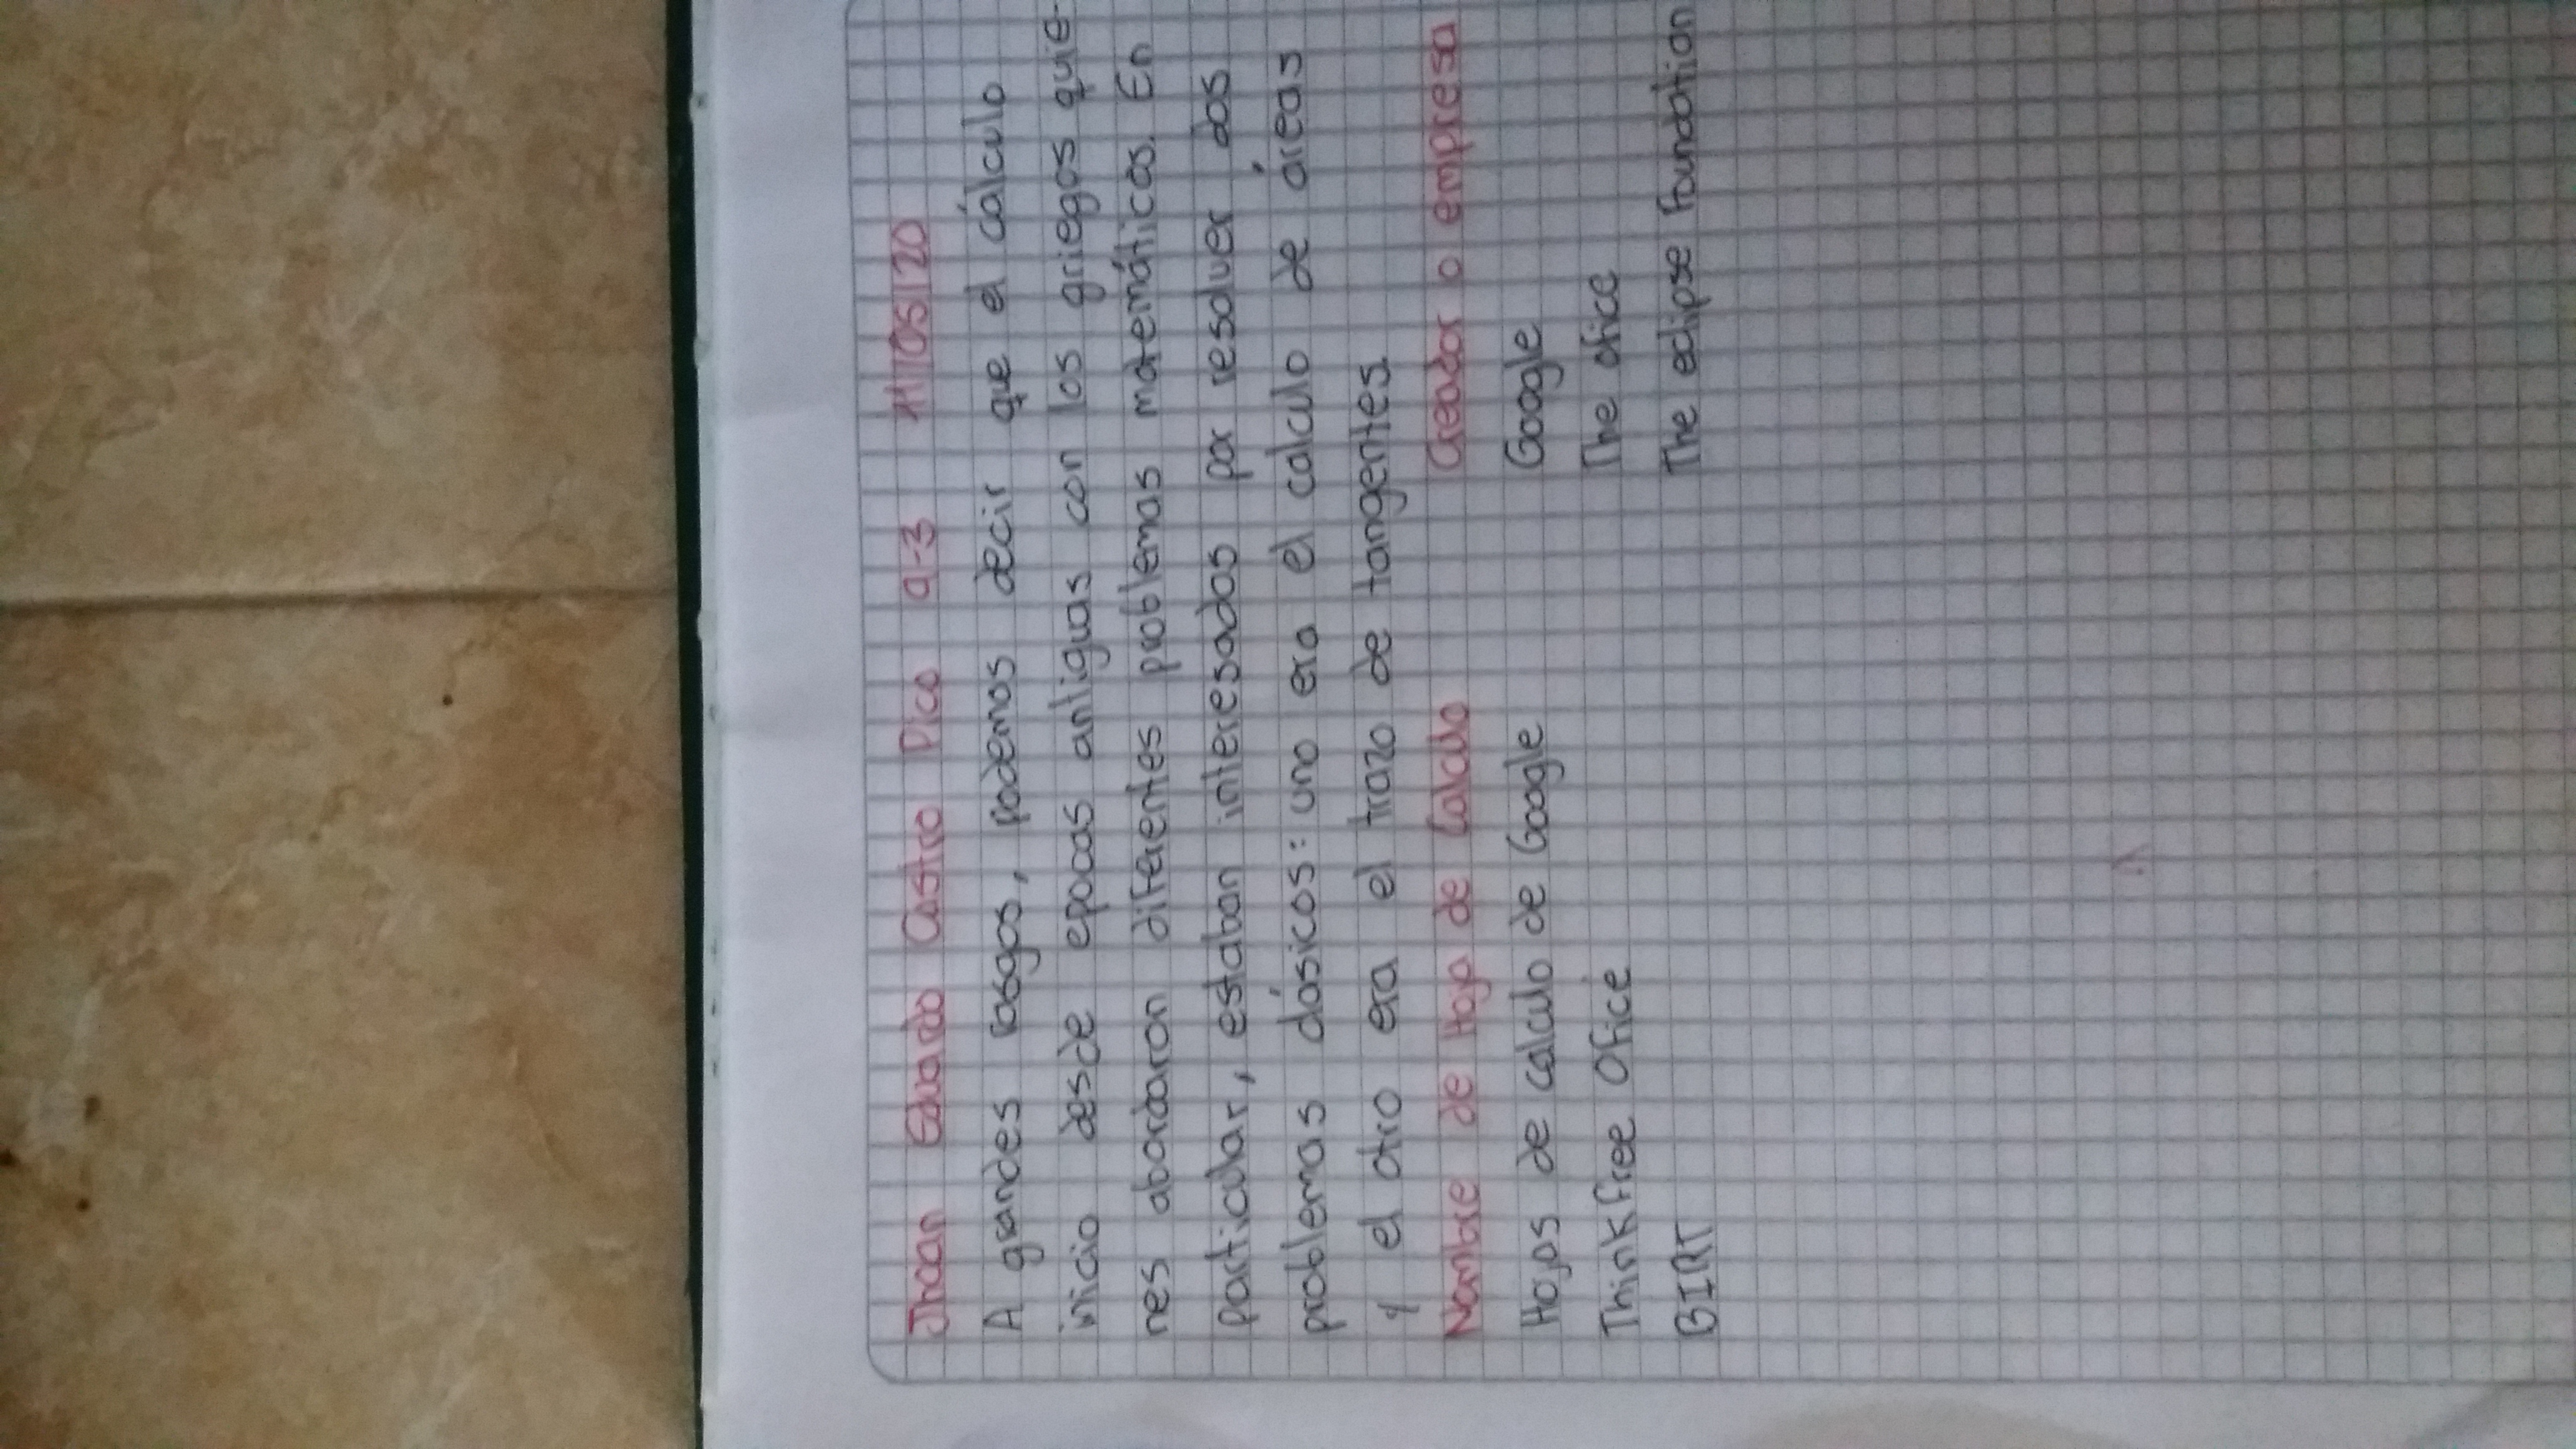 Jhoan Eduardo Castro Pico 9-3 11/05/20
A grandes rasgos, podemos decir que el cálculo
inicio desde epocas antiguas con los griegos quie-
nes abordaron diferentes problemas matemáticos. En
particular, estaban interesados por resolver dos
problemas clásicos: uno era el calculo de áreas
y el otro era el trazo de tangentes.
Nombre de Hoja de Calculo Creador o empresa
Hojas de calculo de Google Google
Thinkfree Ofice The ofice
BIRT The eclipse Foundation